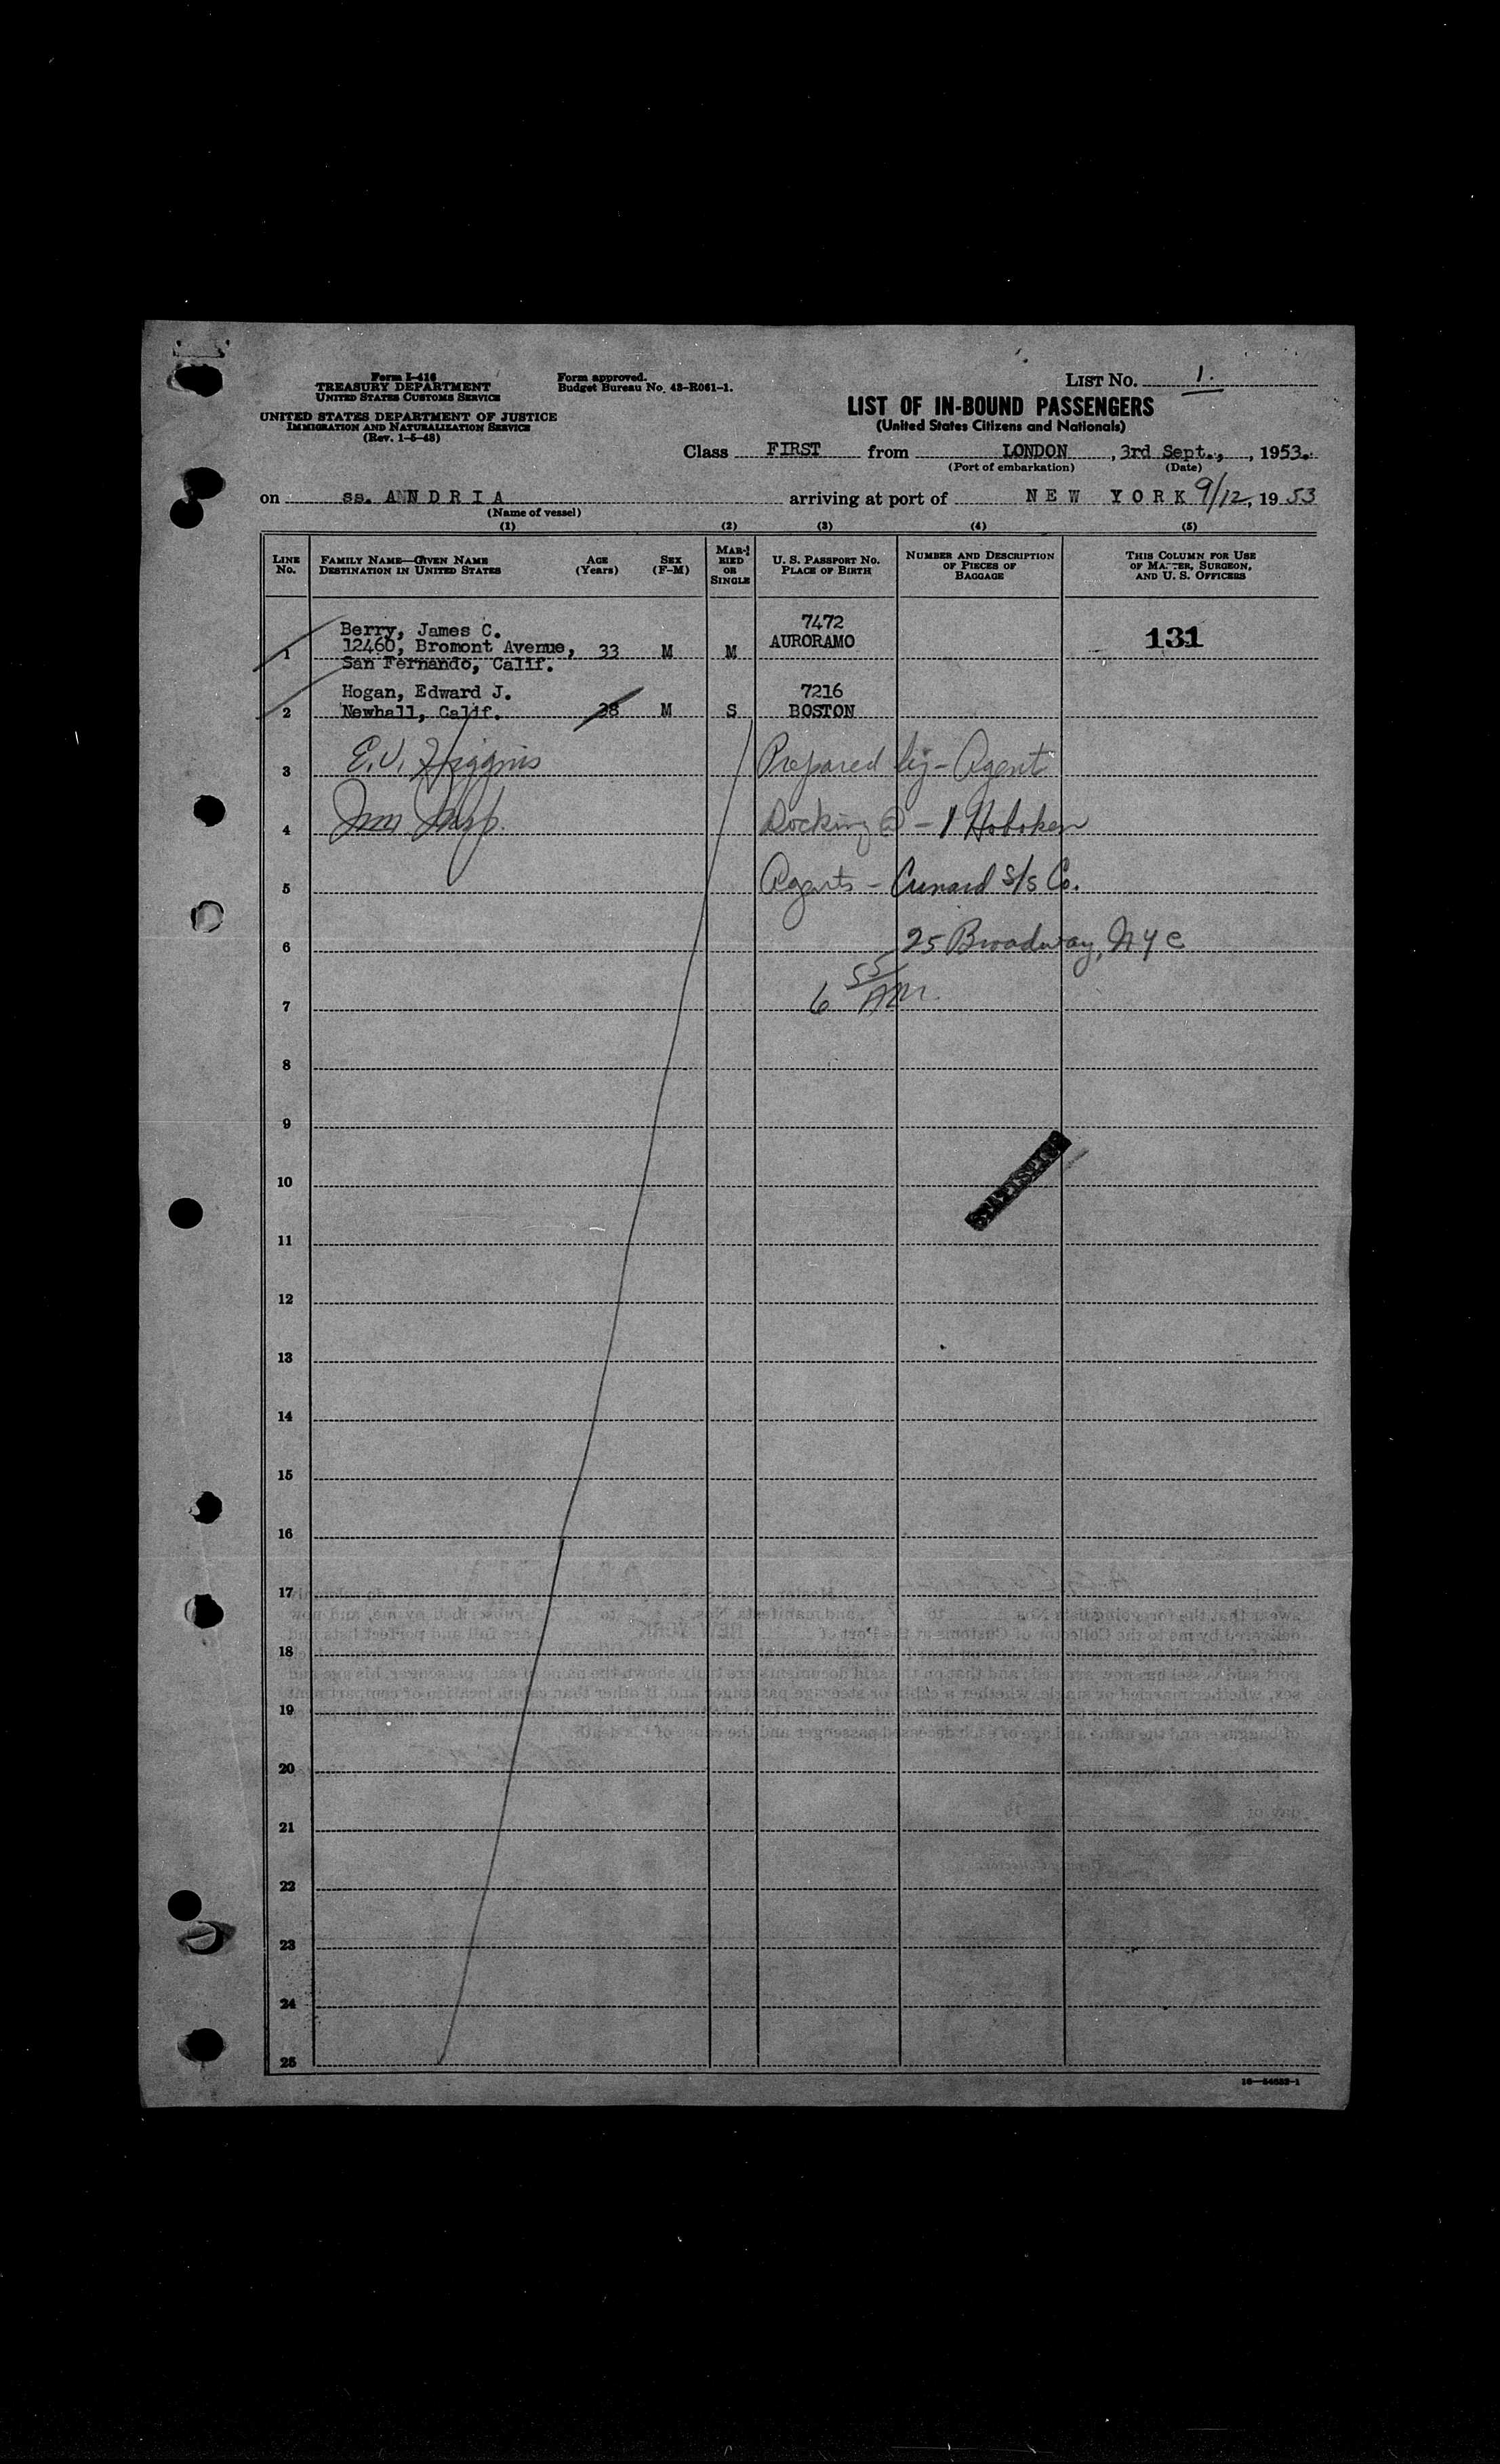 Form I-416
TREASURY DEPARTMENT
UNITED STATES CUSTOMS SERVICE
UNITED STATES DEPARTMENT OF JUSTICE
IMMIGRATION AND NATURALIZATION SERVICE
(Rev. 1-5-48)
Form approved.
Budget Bureau No. 43-R061-1.
LIST NO. 1.
LIST OF IN-BOUND PASSENGERS
(United States Citizens and Nationals)
Class FIRST from LONDON, 3rd Sept., 1953.
(Port of embarkation) (Date)
on ss. ANDRIA arriving at port of NEW YORK 9/12, 1953
(Name of vessel)
(1) (2) (3) (4) (5)
LINE NO.
FAMILY NAME—GIVEN NAME
DESTINATION IN UNITED STATES
AGE (Years)
SEX (F-M)
MARRIED OR SINGLE
U. S. PASSPORT NO.
PLACE OF BIRTH
NUMBER AND DESCRIPTION OF PIECES OF BAGGAGE
THIS COLUMN FOR USE OF MASTER, SURGEON, AND U. S. OFFICERS
Berry, James C. 7472
1 12460, Bromont Avenue, 33 M M AURORAMO 131
San Fernando, Calif.
Hogan, Edward J. 7216
2 Newhall, Calif. 38 M S BOSTON
3 E.V. Higgins Prepared by - Agent
4 Imm Insp. Docking @ - 1 Hoboken
5 Agents - Cunard S/S Co.
6 25 Broadway, NYC
7 6 55 AM
8
9
10 STATISTICS
11
12
13
14
15
16
17
18
19
20
21
22
23
24
25